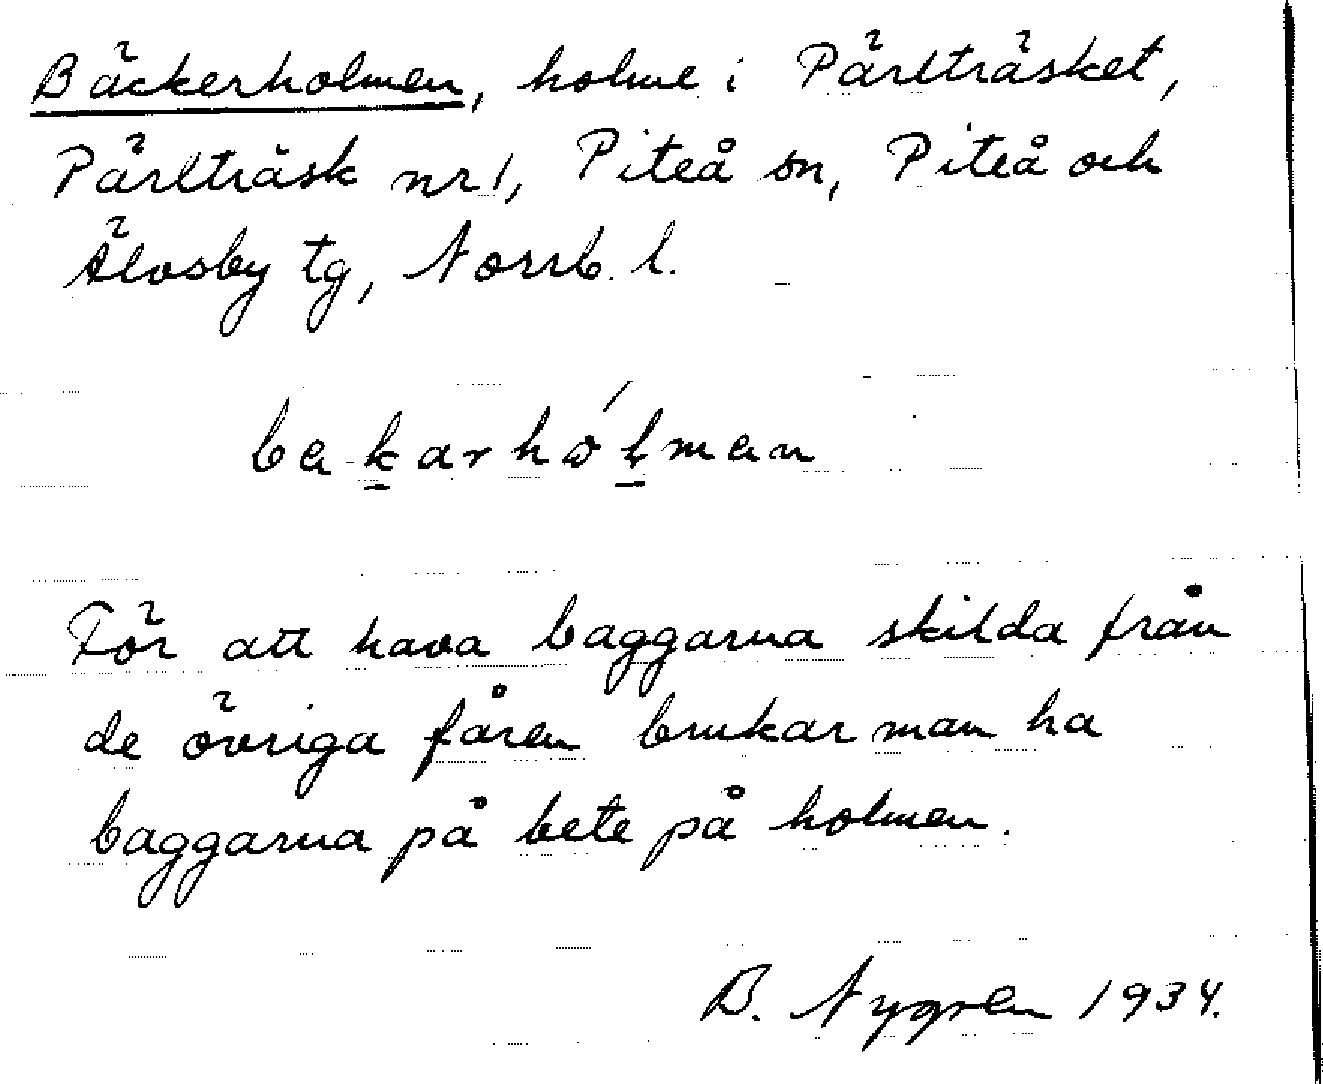 Bäckerholmen, holme i Pärlträsket,
Pärlträsk nr 1, Piteå sn, Piteå och
Älvsby tg, Norrb. l.
För att hava baggarna skilda från
de övriga fåren brukar man ha
baggarna på bete på holmen.
B. Nygren 1934.